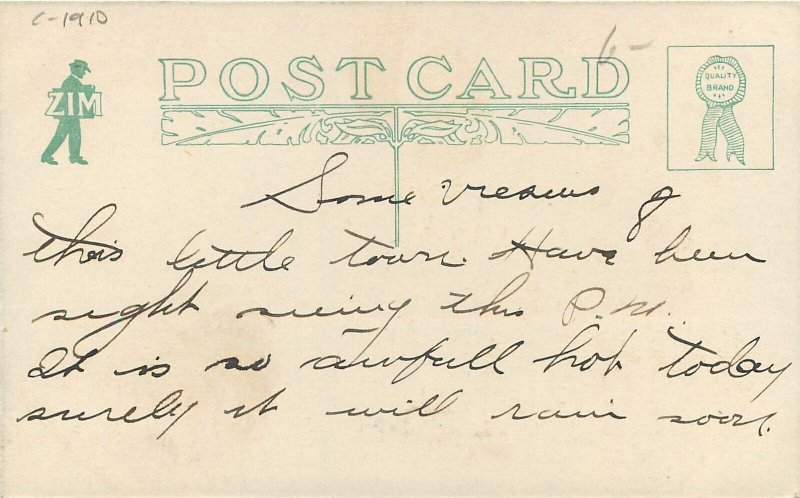 C-1910
6-
POST CARD
ZIM
QUALITY
BRAND
Some views of
this little town. Have been
sight seeing this P.M.
It is so awfull hot today
surely it will rain soon.